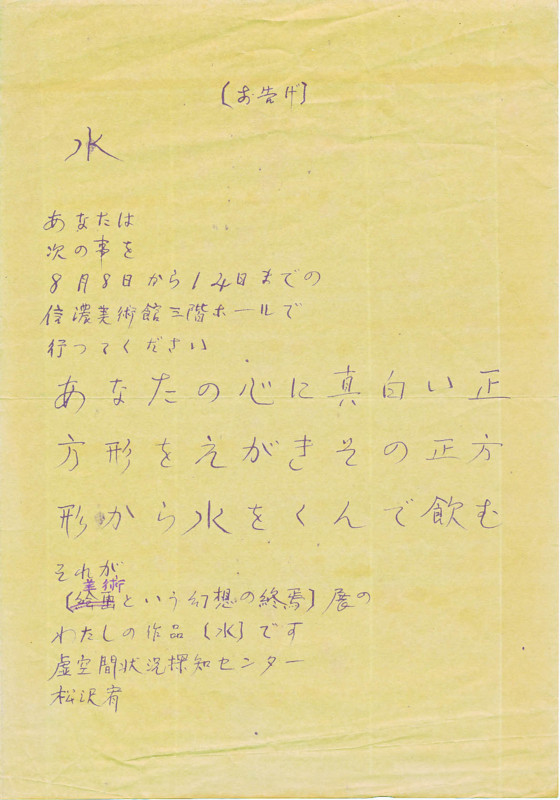 〔お告げ〕
水
あなたは
次の事を
8月8日から14日までの
信濃美術館三階ホールで
行ってください
あなたの心に真白い正
方形をえがきその正方
形から水をくんで飲む
それが
美術
〔絵画という幻想の終焉〕展の
わたしの作品〔水〕です
虚空間状況探知センター
松沢宥